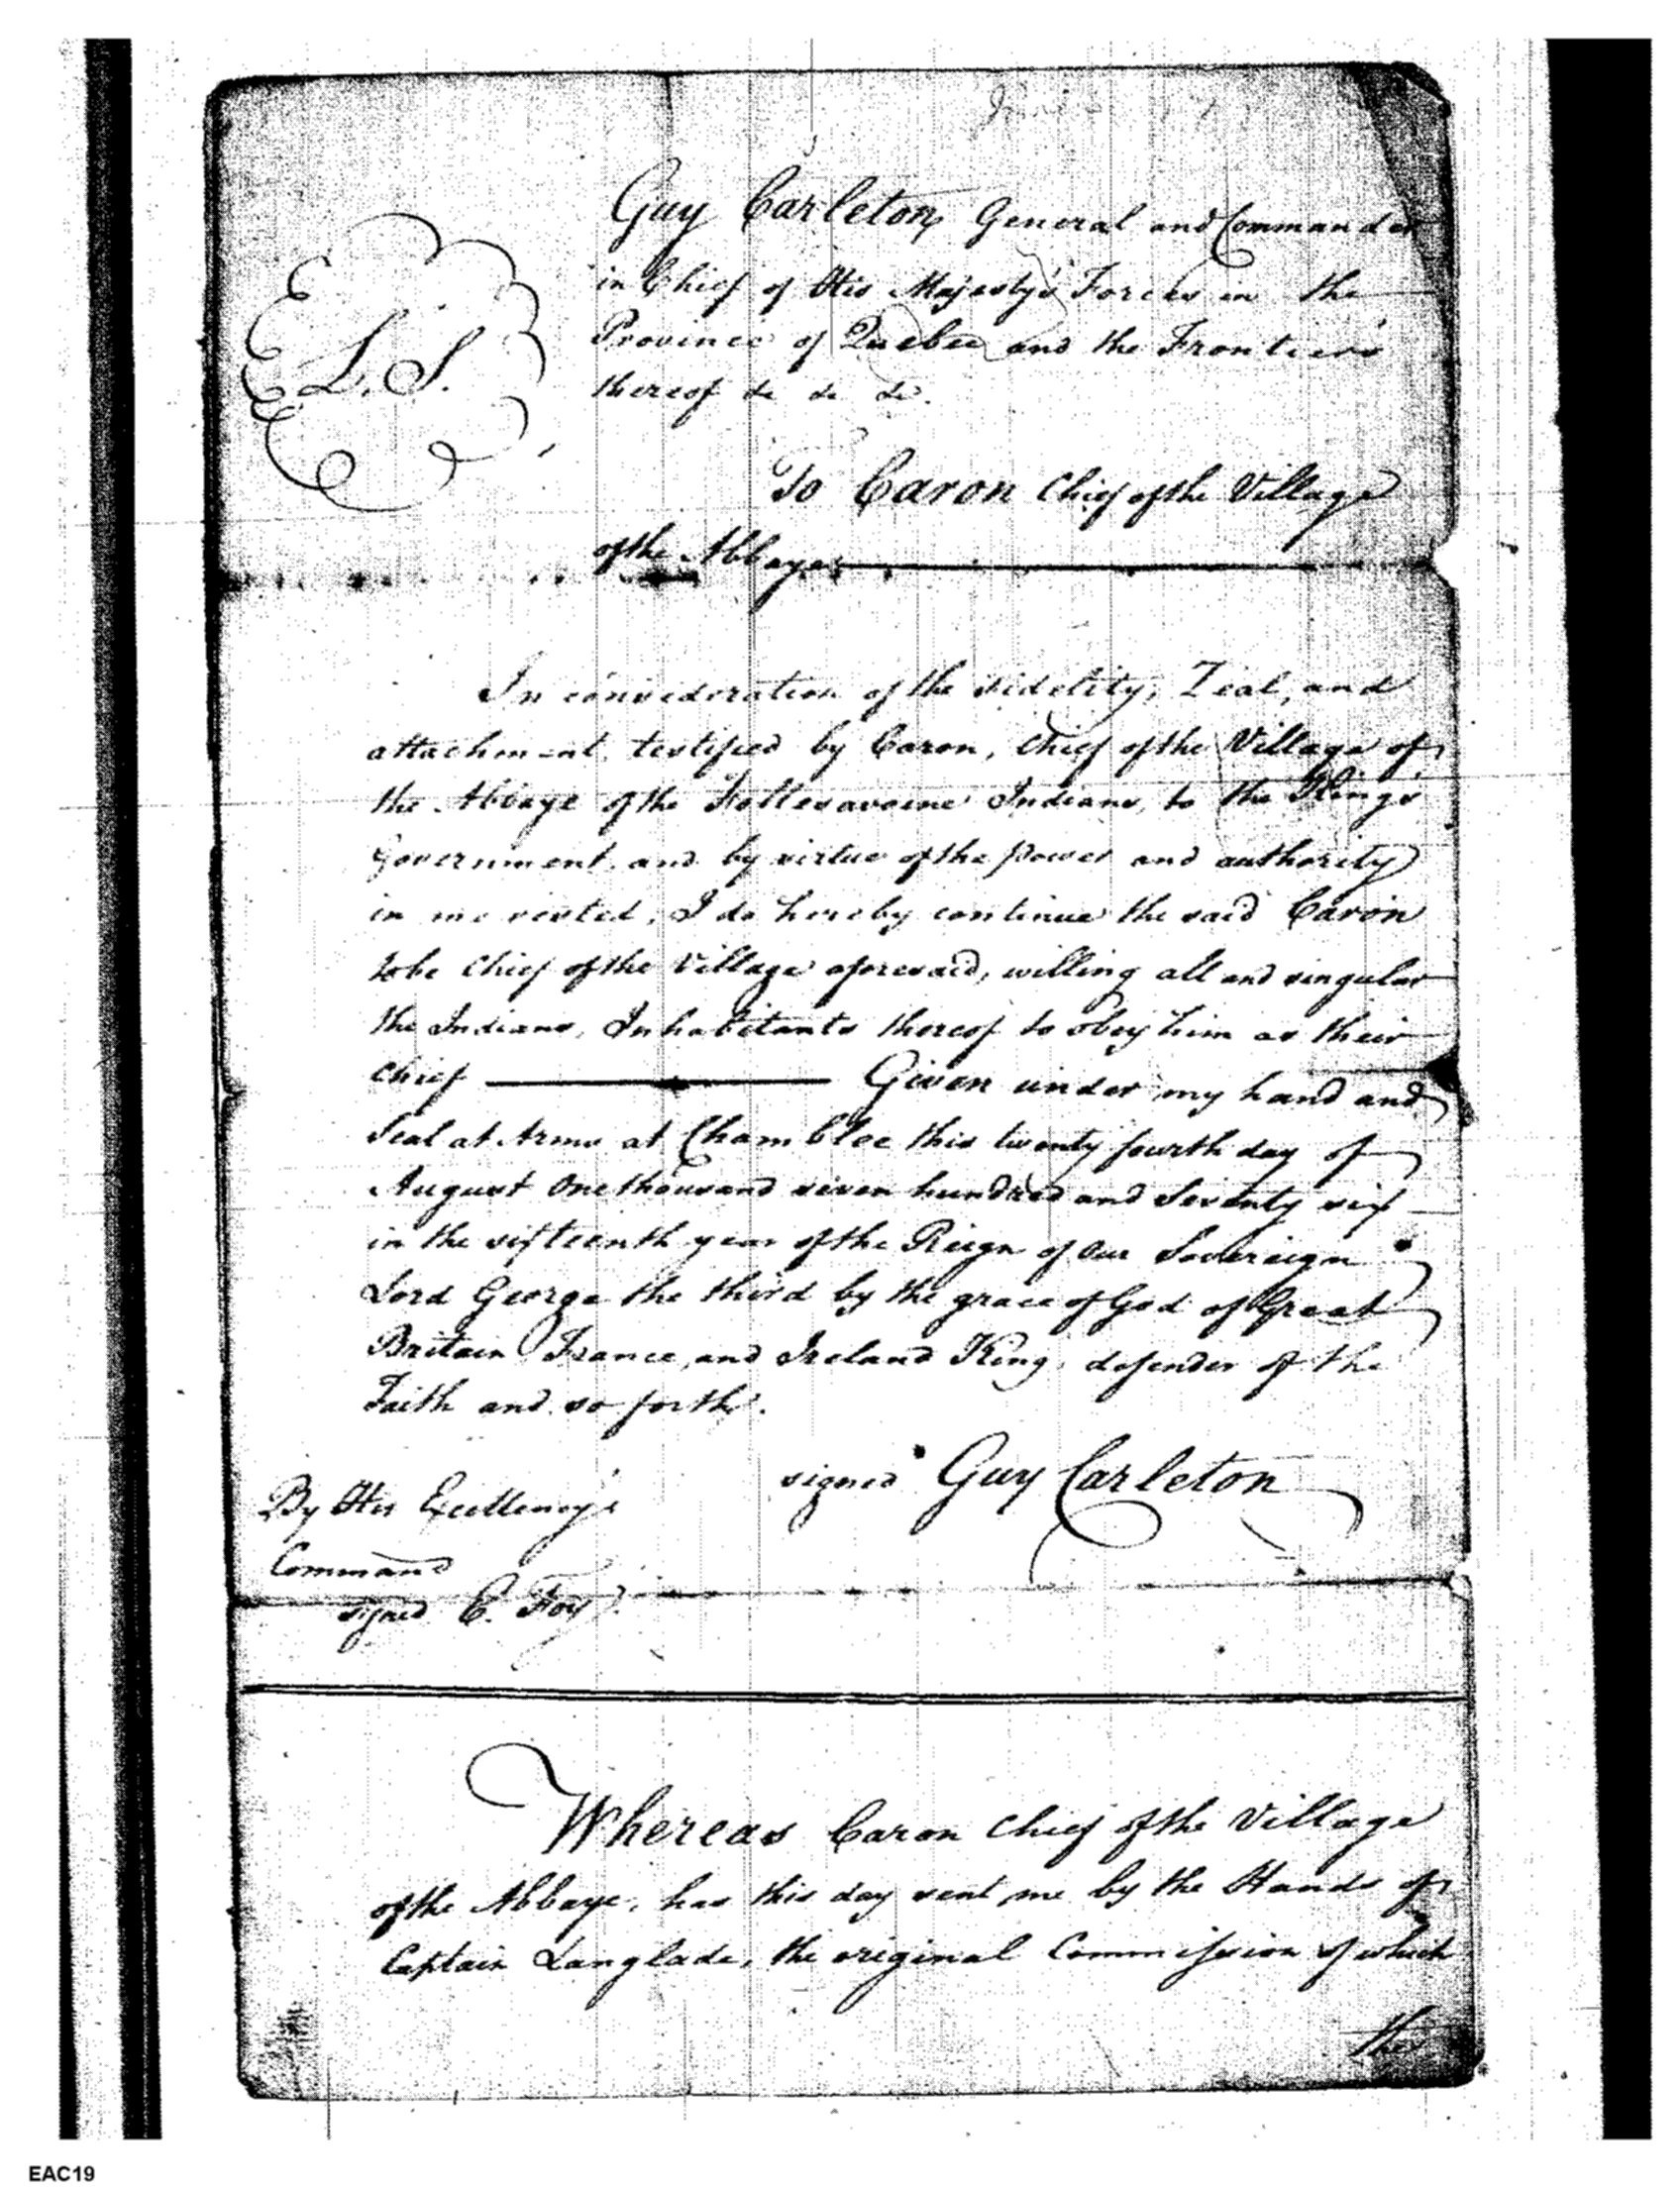 Guy Carleton General and Commander
in Chief of His Majesty's Forces in the
Province of Quebec and the Frontiers
thereof &c &c &c.
L.S.
To Caron Chief of the Village
of the Abbaye
In consideration of the fidelity, Zeal, and
attachment, testified by Caron, Chief of the Village of
the Abbaye of the Follesavoine Indians, to the King's
Government, and by virtue of the power and authority
in me vested, I do hereby continue the said Caron
to be Chief of the Village aforesaid, willing all and singular
the Indians, Inhabitants thereof to obey him as their
Chief Given under my hand and
Seal at Arms at Chamblee this twenty fourth day of
August One thousand seven hundred and Seventy six
in the sixteenth year of the Reign of Our Sovereign
Lord George the third by the grace of God of Great
Britain France, and Ireland King, defender of the
Faith and so forth.
signed Guy Carleton
By His Excellency's
Command
signed E. Foy
Whereas Caron Chief of the Village
of the Abbaye, has this day sent me by the Hands of
Captain Langlade, the original Commission of which
the
EAC19